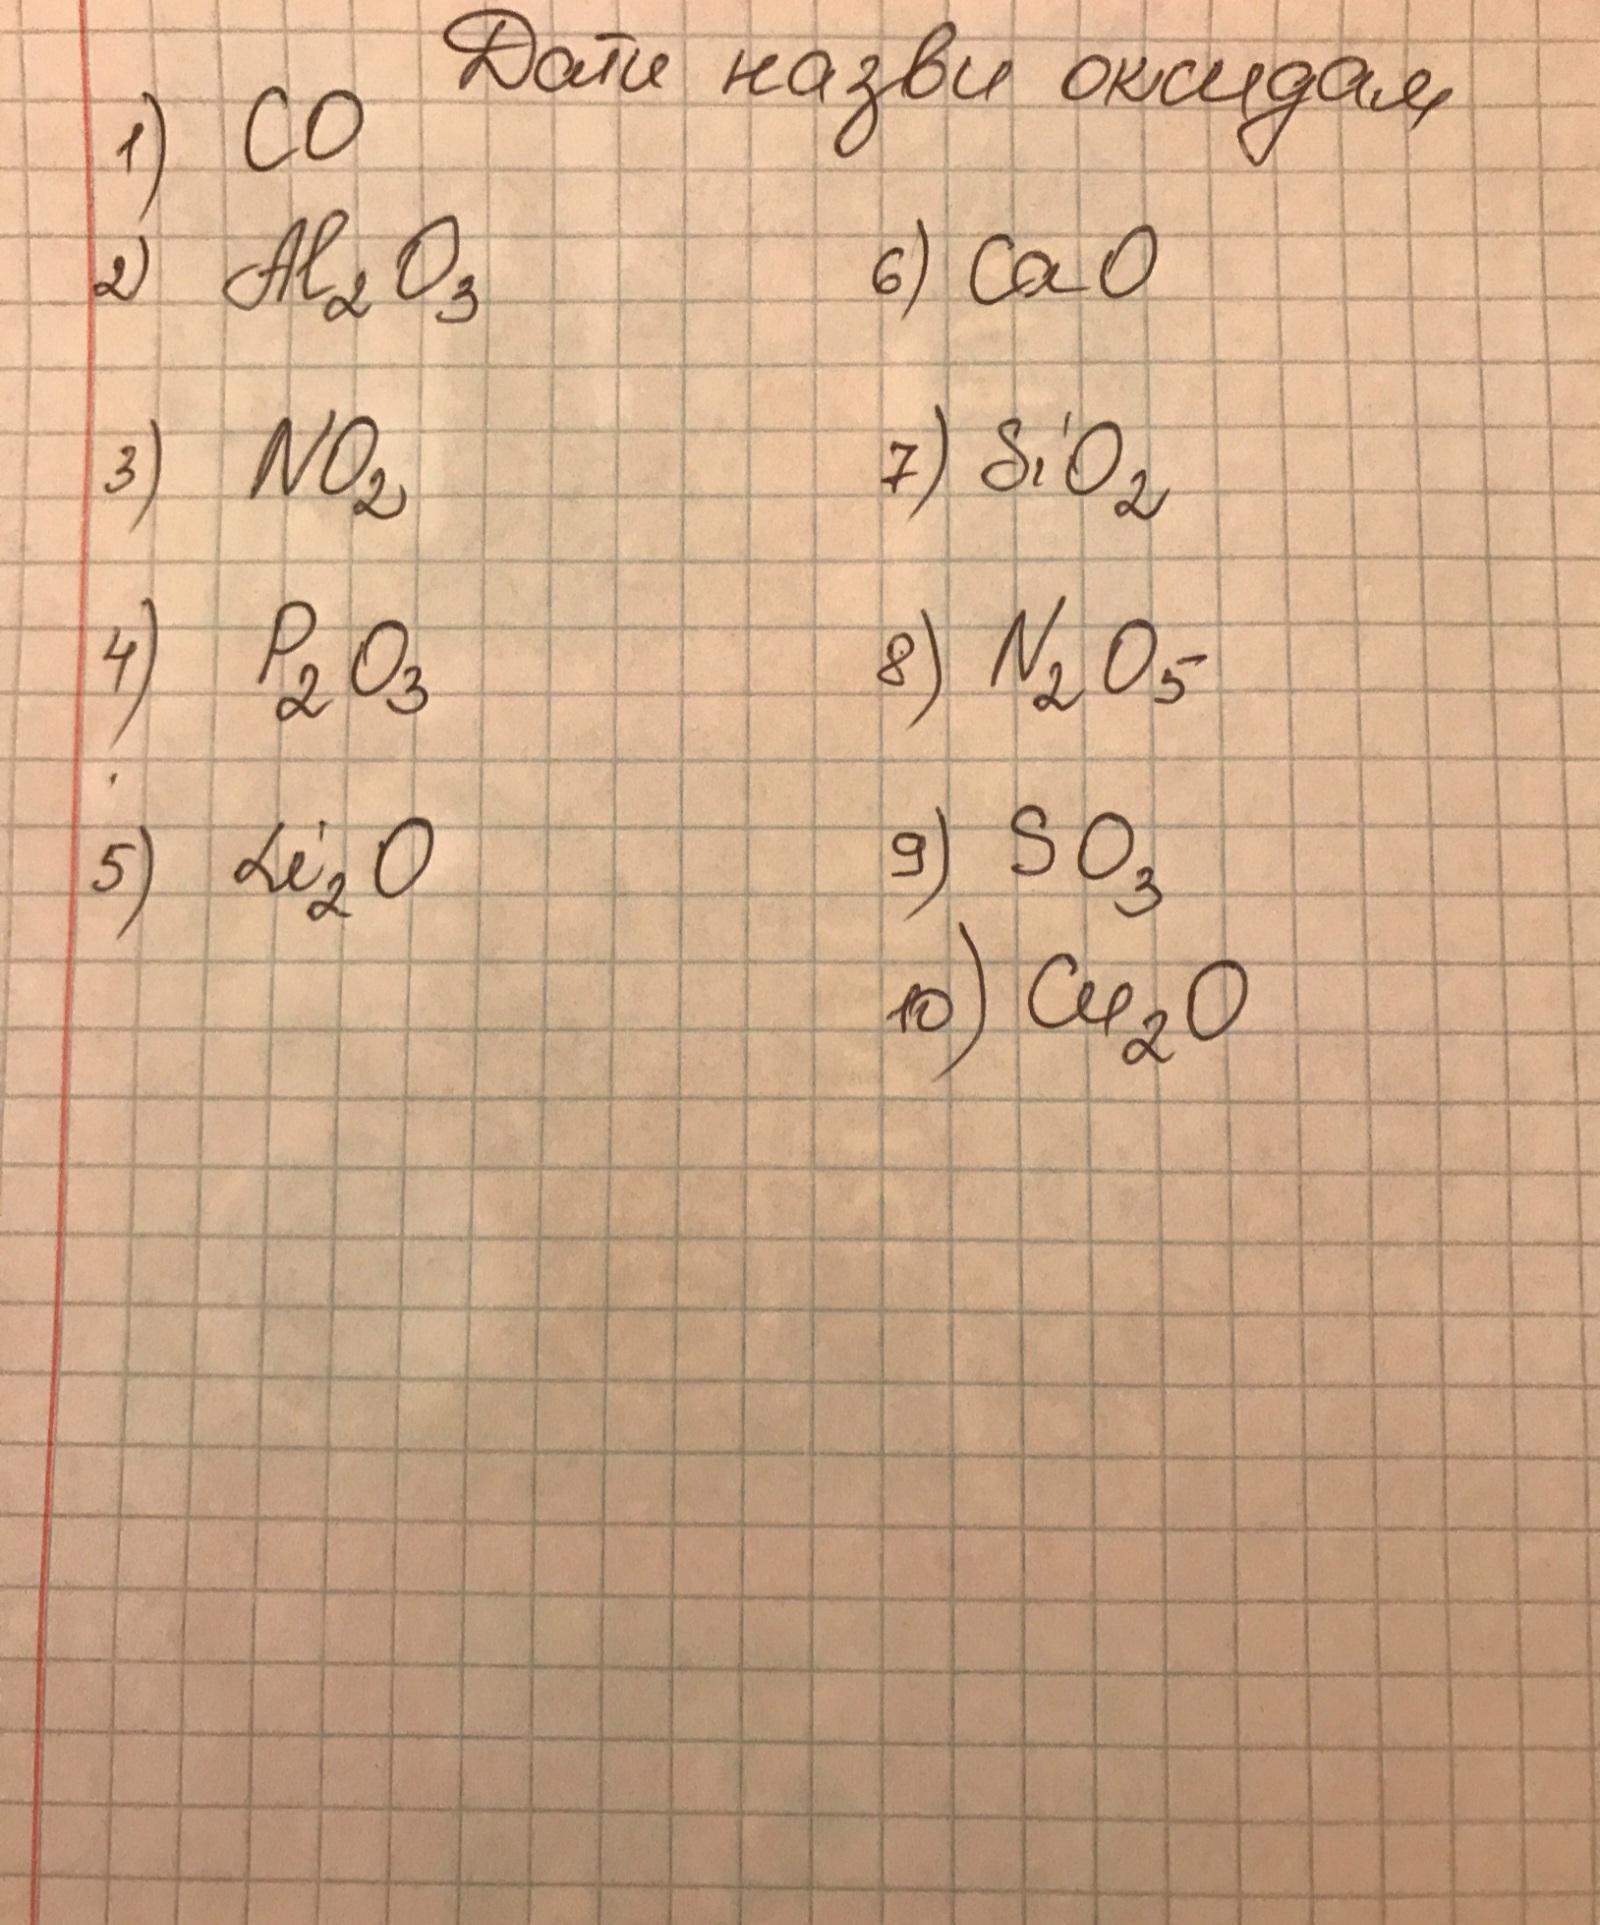 Дати назви оксидам
1) CO
2) Al₂O₃
3) NO₂
4) P₂O₃
5) Li₂O
6) CaO
7) SiO₂
8) N₂O₅
9) SO₃
10) Cu₂O